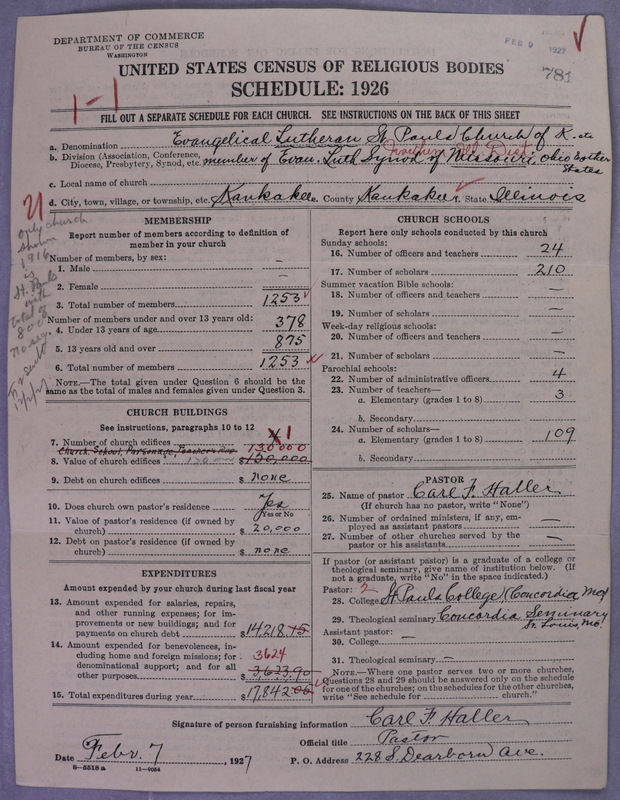 DEPARTMENT OF COMMERCE
BUREAU OF THE CENSUS
WASHINGTON
FEB 9 1927
781
UNITED STATES CENSUS OF RELIGIOUS BODIES
SCHEDULE: 1926
1-1
FILL OUT A SEPARATE SCHEDULE FOR EACH CHURCH. SEE INSTRUCTIONS ON THE BACK OF THIS SHEET
a. Denomination Evangelical Lutheran St. Pauls Church of K. etc
b. Division (Association, Conference, Diocese, Presbytery, Synod, etc. member of Evan. Luth Synod of Missouri, Ohio & other States
Northern Ill. Dist.
c. Local name of church
d. City, town, village, or township, etc. Kankakee County Kankakee State Illinois
21
only church
shown
1916
is
St. Pauls
with
total of
800
MEMBERSHIP
Report number of members according to definition of
member in your church
Number of members, by sex:
1. Male —
2. Female —
3. Total number of members 1253
Number of members under and over 13 years old:
4. Under 13 years of age 378
5. 13 years old and over 875
6. Total number of members 1253
NOTE.—The total given under Question 6 should be the
same as the total of males and females given under Question 3.
CHURCH BUILDINGS
See instructions, paragraphs 10 to 12
7. Number of church edifices 1
Church, School, Parsonage, Teachers Res.
130000
8. Value of church edifices $130,000
9. Debt on church edifices $ none
10. Does church own pastor's residence Yes
Yes or No
11. Value of pastor's residence (if owned by
church) $ 20,000
12. Debt on pastor's residence (if owned by
church) $ none
EXPENDITURES
Amount expended by your church during last fiscal year
13. Amount expended for salaries, repairs,
and other running expenses; for im-
provements or new buildings; and for
payments on church debt $14218.15
14. Amount expended for benevolences, in-
cluding home and foreign missions; for
denominational support; and for all
other purposes $3623.90
3624
15. Total expenditures during year $17,842.00
CHURCH SCHOOLS
Report here only schools conducted by this church
Sunday schools:
16. Number of officers and teachers 24
17. Number of scholars 210
Summer vacation Bible schools:
18. Number of officers and teachers —
19. Number of scholars —
Week-day religious schools:
20. Number of officers and teachers —
21. Number of scholars —
Parochial schools:
22. Number of administrative officers 4
23. Number of teachers—
a. Elementary (grades 1 to 8) 3
b. Secondary
24. Number of scholars—
a. Elementary (grades 1 to 8) 109
b. Secondary
PASTOR
25. Name of pastor Carl F. Haller
(If church has no pastor, write "None")
26. Number of ordained ministers, if any, em-
ployed as assistant pastors —
27. Number of other churches served by the
pastor or his assistants —
If pastor (or assistant pastor) is a graduate of a college or
theological seminary, give name of institution below. (If
not a graduate, write "No" in the space indicated.)
Pastor: 2
28. College St Pauls College (Concordia Mo)
29. Theological seminary Concordia Seminary
St. Louis, Mo.
Assistant pastor:
30. College —
31. Theological seminary —
NOTE.—Where one pastor serves two or more churches,
Questions 28 and 29 should be answered only on the schedule
for one of the churches; on the schedules for the other churches,
write "See schedule for church."
Signature of person furnishing information Carl F Haller
Official title Pastor
Date Febr. 7, 1927 P. O. Address 228 S. Dearborn Ave.
8—5518 a 11—9054